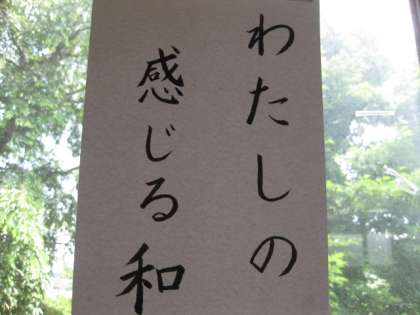 わたしの
感じる和